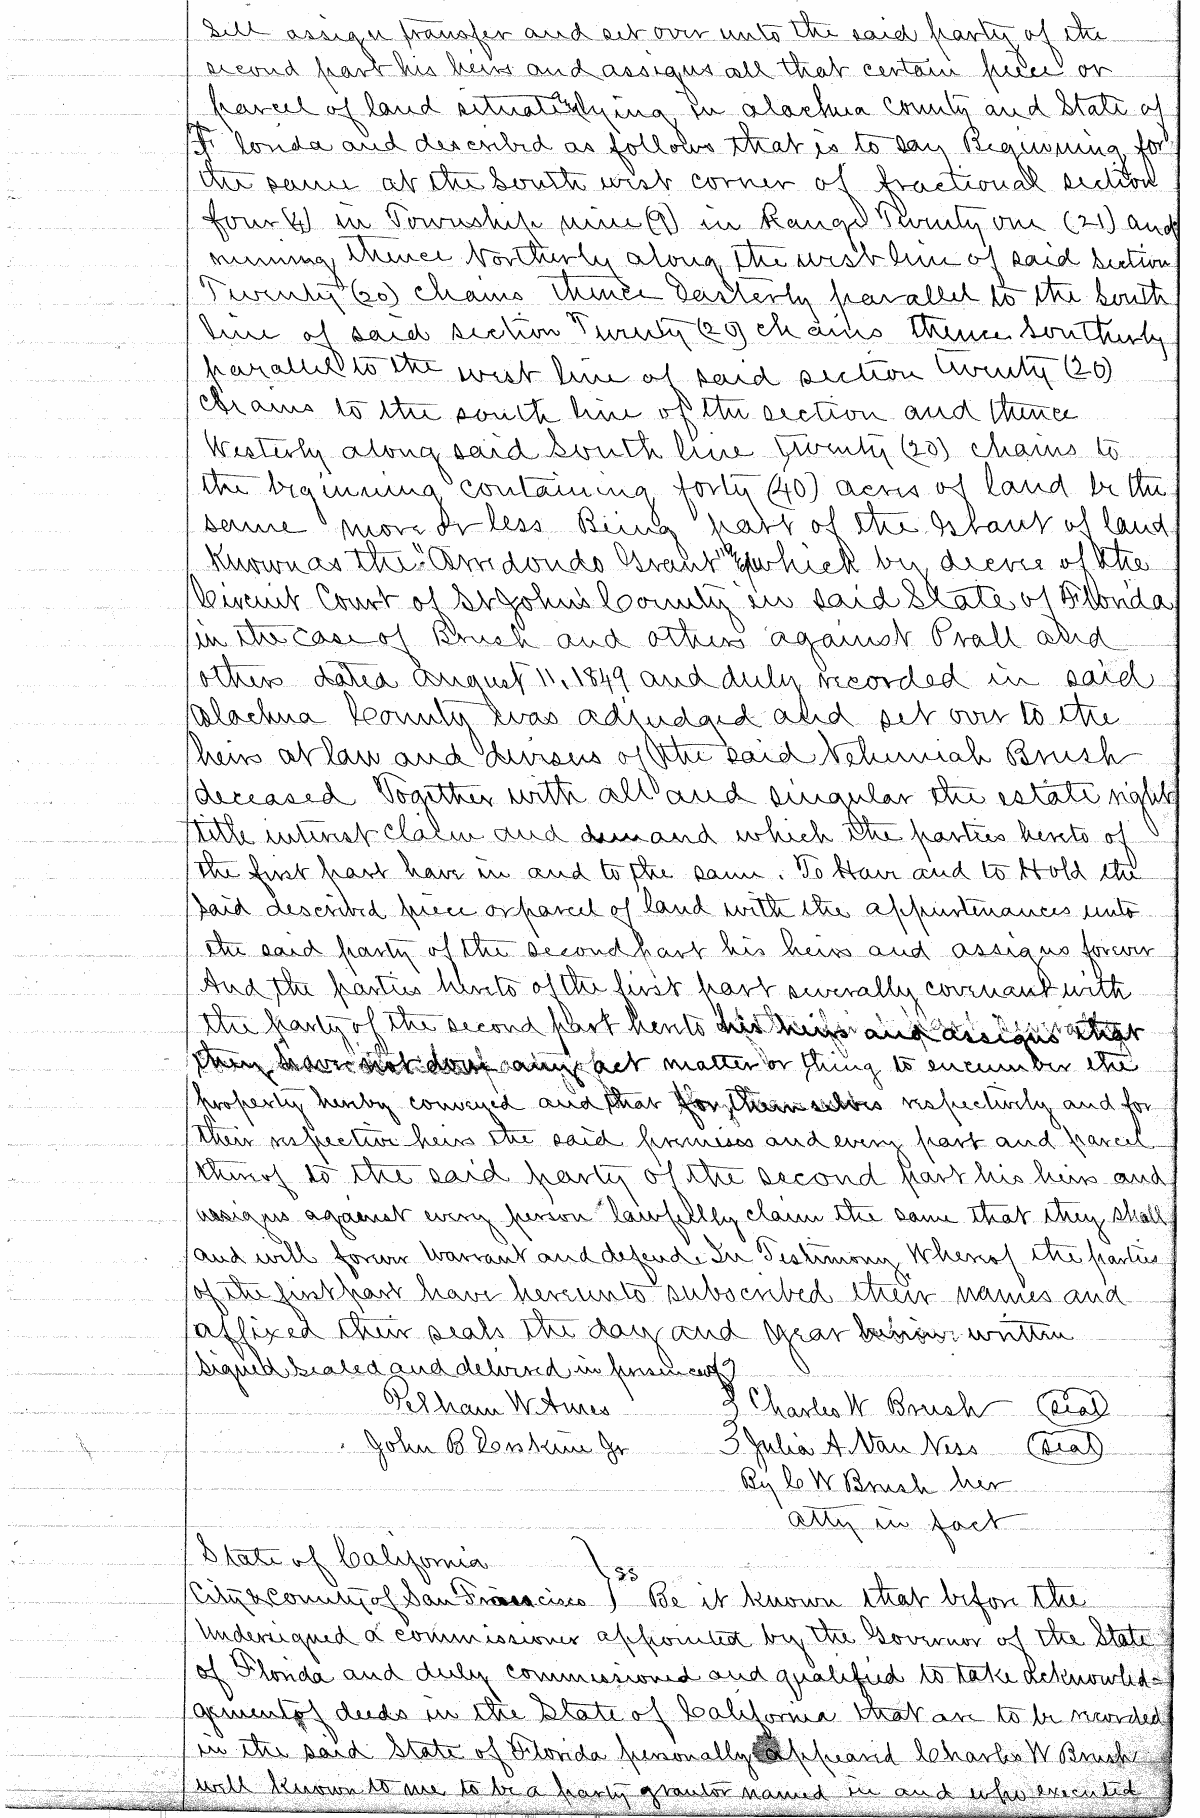 Sell assign transfer and set over unto the said party of the
second part his heirs and assigns all that certain piece or
parcel of land situate & lying in Alachua County and State of
Florida and described as follows that is to say Beginning for
the same at the South west corner of fractional section
four (4) in Township nine (9) in Range Twenty one (21) and
running thence Northerly along the west line of said section
Twenty (20) chains thence Easterly parallel to the South
line of said section Twenty (20) chains thence Southerly
parallel to the west line of said section twenty (20)
chains to the south line of the section and thence
Westerly along said South line twenty (20) chains to
the beginning containing forty (40) acres of land be the
same more or less Being part of the Grant of land
Known as the "Arredondo Grant" & which by decree of the
Circuit Court of St Johns County in said State of Florida
in the case of Brush and others against Prall and
others dated August 11, 1849 and duly recorded in said
Alachua County was adjudged and set over to the
heirs at law and devisees of the said Nehemiah Brush
deceased Together with all and singular the estate right
title interest claim and demand which the parties hereto of
the first part have in and to the same. To Have and to Hold the
said described piece or parcel of land with the appurtenances unto
the said party of the second part his heirs and assigns forever
And the parties hereto of the first part severally covenant with
the party of the second part hereto his heirs and assigns that
they have not done any act matter or thing to encumber the
property hereby conveyed and that for themselves respectively and for
their respective heirs the said premises and every part and parcel
thereof to the said party of the second part his heirs and
assigns against every person lawfully claim the same that they shall
and will forever Warrant and defend. In Testimony Whereof the parties
of the first part have hereunto subscribed their names and
affixed their seals the day and year written
Signed sealed and delivered in presence of
Pelham W. Ames Charles W Brush (Seal)
John B Erskine Jr Julia A. Van Ness (Seal)
By C W Brush her
atty in fact
State of California
City & County of San Francisco ) ss Be it known that before the
Undersigned a commissioner appointed by the Governor of the State
of Florida and duly commissioned and qualified to take acknowled-
gements of deeds in the State of California that are to be recorded
in the said State of Florida personally appeared Charles W Brush
well known to me to be a party grantor named in and who executed